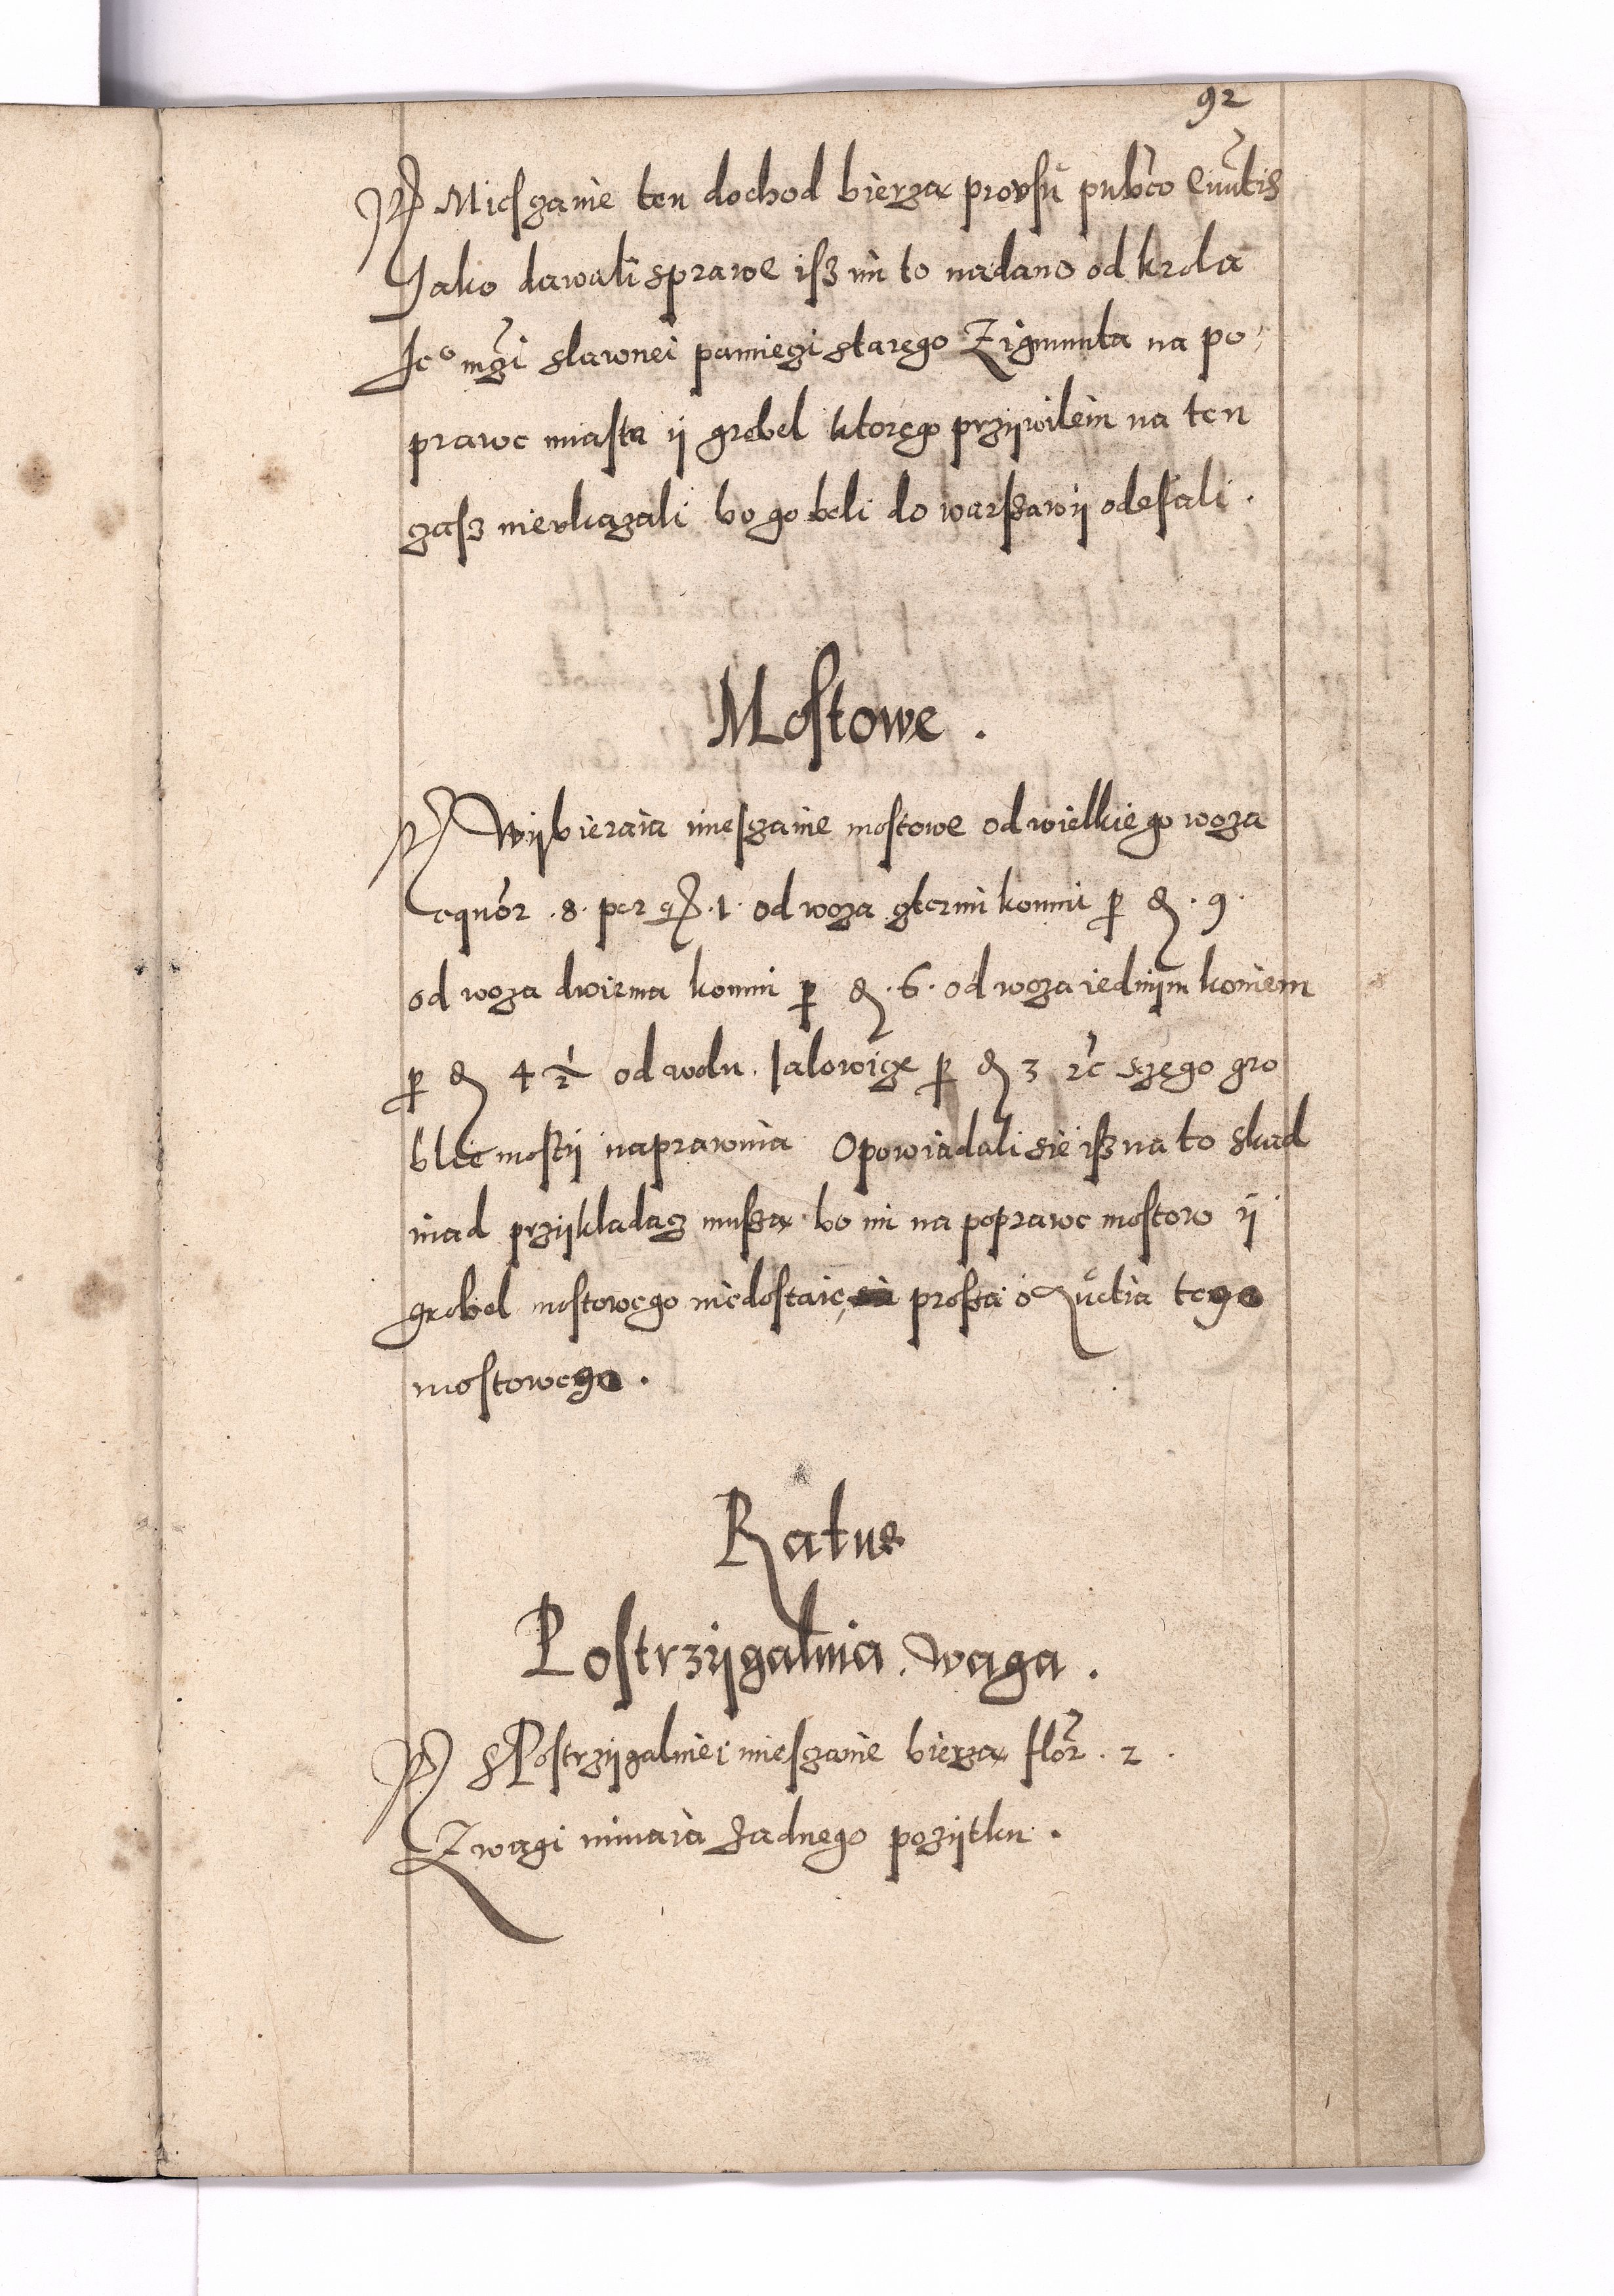 92
Miesganie ten dochod bierza pro vsu pub͂co Ciuit͂tis
Jako dawali sprawe iſz im to nadano od krola
Jeº mg͂i slawnei pamiegi starego Zigmunta na po⸗
prawe miasta ij grobel ktorego prziwilein na ten
gaſz nievkazali bo go beli do warſzawij odeſali.
Moſtowe.
Wijbieraia mieſzanie moſtowe od wielkiego woza
equo͂r .8. per gß .1. od woza gtermi konmi ꝑ ₰ .9.
od woza dwiema konmi ꝑ ₰ .6. od woza iednijm koniem
ꝑ ₰ 4 1/2 od wolu. Jalowige ꝑ ₰ 3 ꝛc szego gro
ble moſtij naprawuia Opowiadali sie iſz na to skad
inad przijkladag muſza bo im na poprawe moſtow ij
grobel moſtowego niedoſtaie, proſza o tego
moſtowego.
Ratus
Poſtrzijgalnia. waga.
S Poſtrzijgalniei mieſganie bierza flor. 2.
Z wagi nimaia zadnego pozijtku.